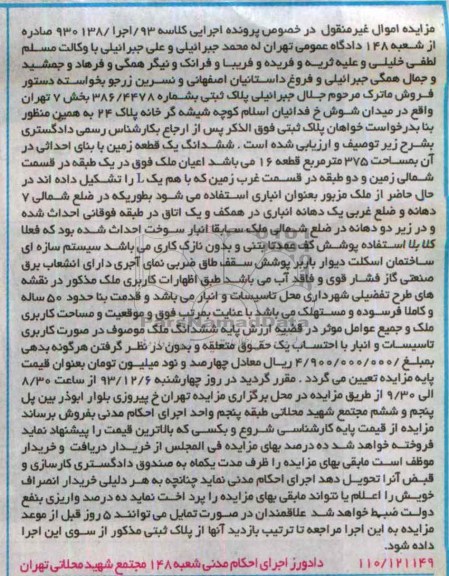 مزایده اموال غیرمنقول در خصوص پرونده اجرایی کلاسه ۹۳/اجرا /۹۳۰۱۳۸ صادره
از شعبه ۱۴۸ دادگاه عمومی تهران له محمد جبرائیلی و علی جبرائیلی با وکالت مسلم
لطفی خلیلی و علیه ثریه و فریده و فریبا و فرانک و نیگر همگی و فرهاد و جمشید
و جمال همگی جبرائیلی و فروغ داستانیان اصفهانی و نسرین زرجو بخواسته دستور
فروش ماترک مرحوم جلال جبرائیلی پلاک ثبتی بشماره ۳۸۶/۴۴۷۸ بخش ۷ تهران
واقع در میدان شوش خ فدائیان اسلام کوچه شیشه گر خانه پلاک ۲۴ به همین منظور
بنا بدرخواست خواهان پلاک ثبتی فوق الذکر پس از ارجاع بکارشناس رسمی دادگستری
بشرح زیر توصیف و ارزیابی شده است . ششدانگ یک قطعه زمین با بنای احداثی در
آن بمساحت ۳۷۵ مترمربع قطعه ۱۶ می باشد اعیان ملک فوق در یک طبقه در قسمت
شمالی زمین و دو طبقه در قسمت غرب زمین که با هم یک L را تشکیل داده اند در
حال حاضر از ملک مزبور بعنوان انباری استفاده می شود بطوریکه در ضلع شمالی ۷
دهانه و ضلع غربی یک دهانه انباری در همکف و یک اتاق در طبقه فوقانی احداث شده
و در زیر دو دهانه در ضلع شمالی ملک سابقا انبار سوخت احداث شده بود که فعلا
بلا استفاده پوشش کف عمدتا بتنی و بدون نازک کاری می باشد سیستم سازه ای
ساختمان اسکلت دیوار باربر پوشش سقف طاق ضربی نمای آجری دارای انشعاب برق
صنعتی گاز فشار قوی و فاقد آب می باشد طبق اظهارات کاربری ملک مذکور در نقشه
های طرح تفضیلی شهرداری محل تاسیسات و انبار می باشد و قدمت بنا حدود ۵۰ ساله
و کاملا فرسوده و مستهلک می باشد با عنایت بمراتب فوق و موقعیت و مساحت کاربری
ملک و جمیع عوامل موثر در قضیه ارزش پایه ششدانگ ملک موصوف در صورت کاربری
تاسیسات و انبار با احتساب یک حقوق متعلقه و بدون در نظر گرفتن هرگونه بدهی
بمبلغ ۴/۹۰۰/۰۰۰/۰۰۰ ریال معادل چهارصد و نود میلیون تومان بعنوان قیمت
پایه مزایده تعیین می گردد . مقرر گردید در روز چهارشنبه ۹۳/۱۲/۶ از ساعت ۸/۳۰
الی ۹/۳۰ از طریق مزایده در محل برگزاری مزایده تهران خ پیروزی بلوار ابوذر بین پل
پنجم و ششم مجتمع شهید محلاتی طبقه پنجم واحد اجرای احکام مدنی بفروش برساند
مزایده از قیمت پایه کارشناسی شروع و بکسی که بالاترین قیمت را پیشنهاد نماید
فروخته خواهد شد ده درصد بهای مزایده فی المجلس از خریدار دریافت و خریدار
موظف است مابقی بهای مزایده را ظرف مدت یکماه به صندوق دادگستری کارسازی و
قبض آنرا تحویل دهد اجرای احکام مدنی نماید چنانچه به هر دلیلی خریدار انصراف
خویش را اعلام یا نتواند مابقی بهای مزایده را پرداخت نماید ده درصد واریزی بنفع
دولت ضبط خواهد شد علاقمندان در صورت تمایل می توانند ۵ روز قبل از موعد
مزایده به این اجرا مراجعه تا ترتیب بازدید آنها از پلاک ثبتی مذکور از سوی این اجرا
داده شود.
۱۱۰/۱۲۱۱۴۹ دادورز اجرای احکام مدنی شعبه ۱۴۸ مجتمع شهید محلاتی تهران